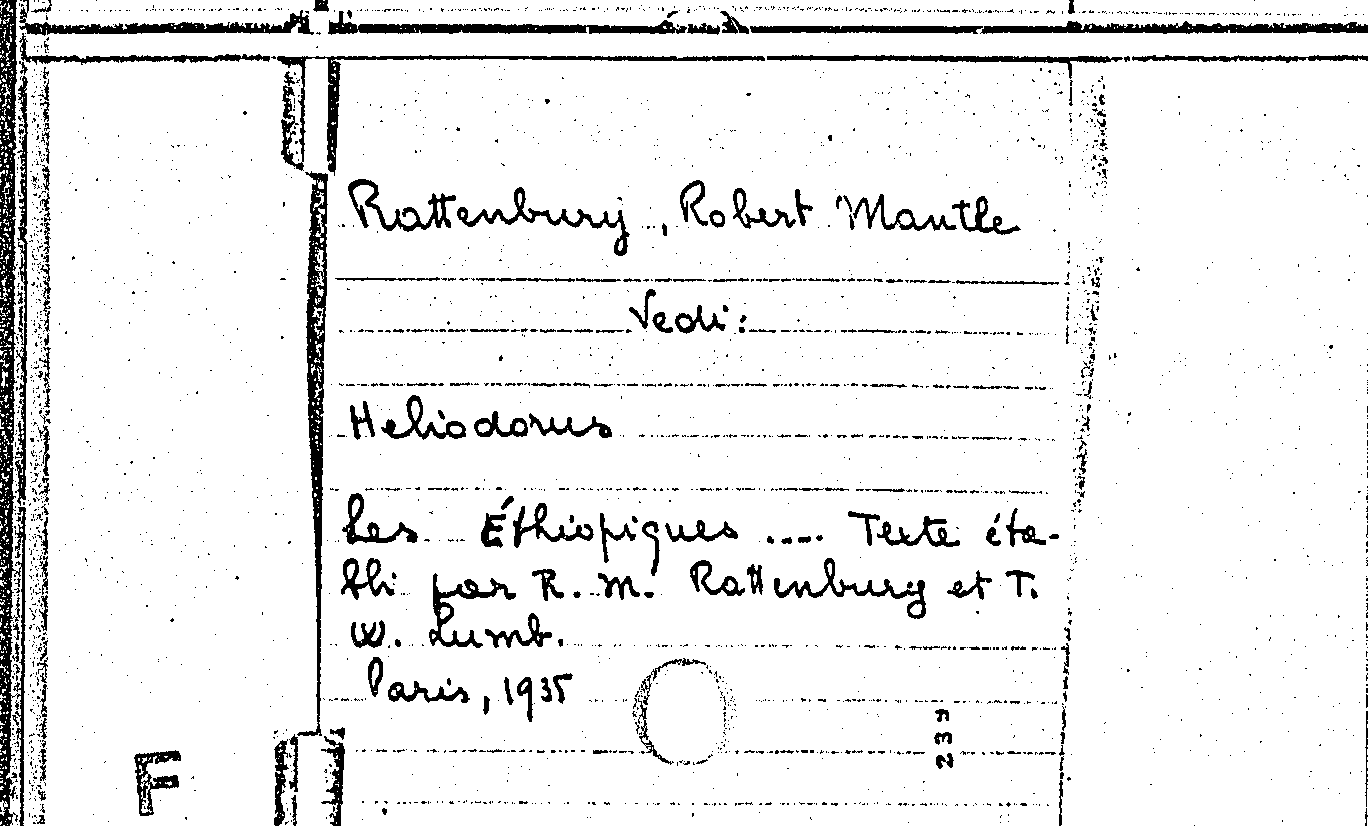 Rattenbury, Robert Mantle
Vedi:
Heliodorus
Les Éthiopiques .... Texte éta-
bli par R. M. Rattenbury et T.
W. Lumb.
Paris, 1935
239
F